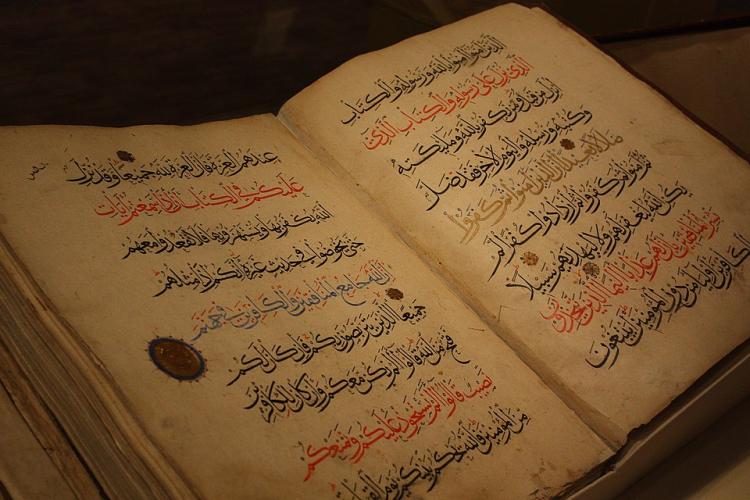 الذين آمنوا آمنوا بالله ورسوله والكتاب
الذي نزل على رسوله والكتاب الذي
أنزل من قبل ومن يكفر بالله وملئكته
وكتبه ورسله واليوم الآخر فقد ضل
ضلالا بعيدا إن الذين آمنوا ثم كفروا
ثم آمنوا ثم كفروا ثم ازدادوا كفرا لم
يكن الله ليغفر لهم ولا ليهديهم سبيلا
بشر المنافقين بأن لهم عذابا أليما الذين يتخذون
الكافرين أولياء من دون المؤمنين أيبتغون
عندهم العزة فإن العزة لله جميعا وقد نزل
عليكم في الكتاب أن إذا سمعتم آيات
الله يكفر بها ويستهزأ بها فلا تقعدوا معهم
حتى يخوضوا في حديث غيره إنكم إذا مثلهم
إن الله جامع المنافقين والكافرين في جهنم
جميعا الذين يتربصون بكم فإن كان لكم
فتح من الله قالوا ألم نكن معكم وإن كان للكافرين
نصيب قالوا ألم نستحوذ عليكم ونمنعكم
من المؤمنين فالله يحكم بينكم يوم